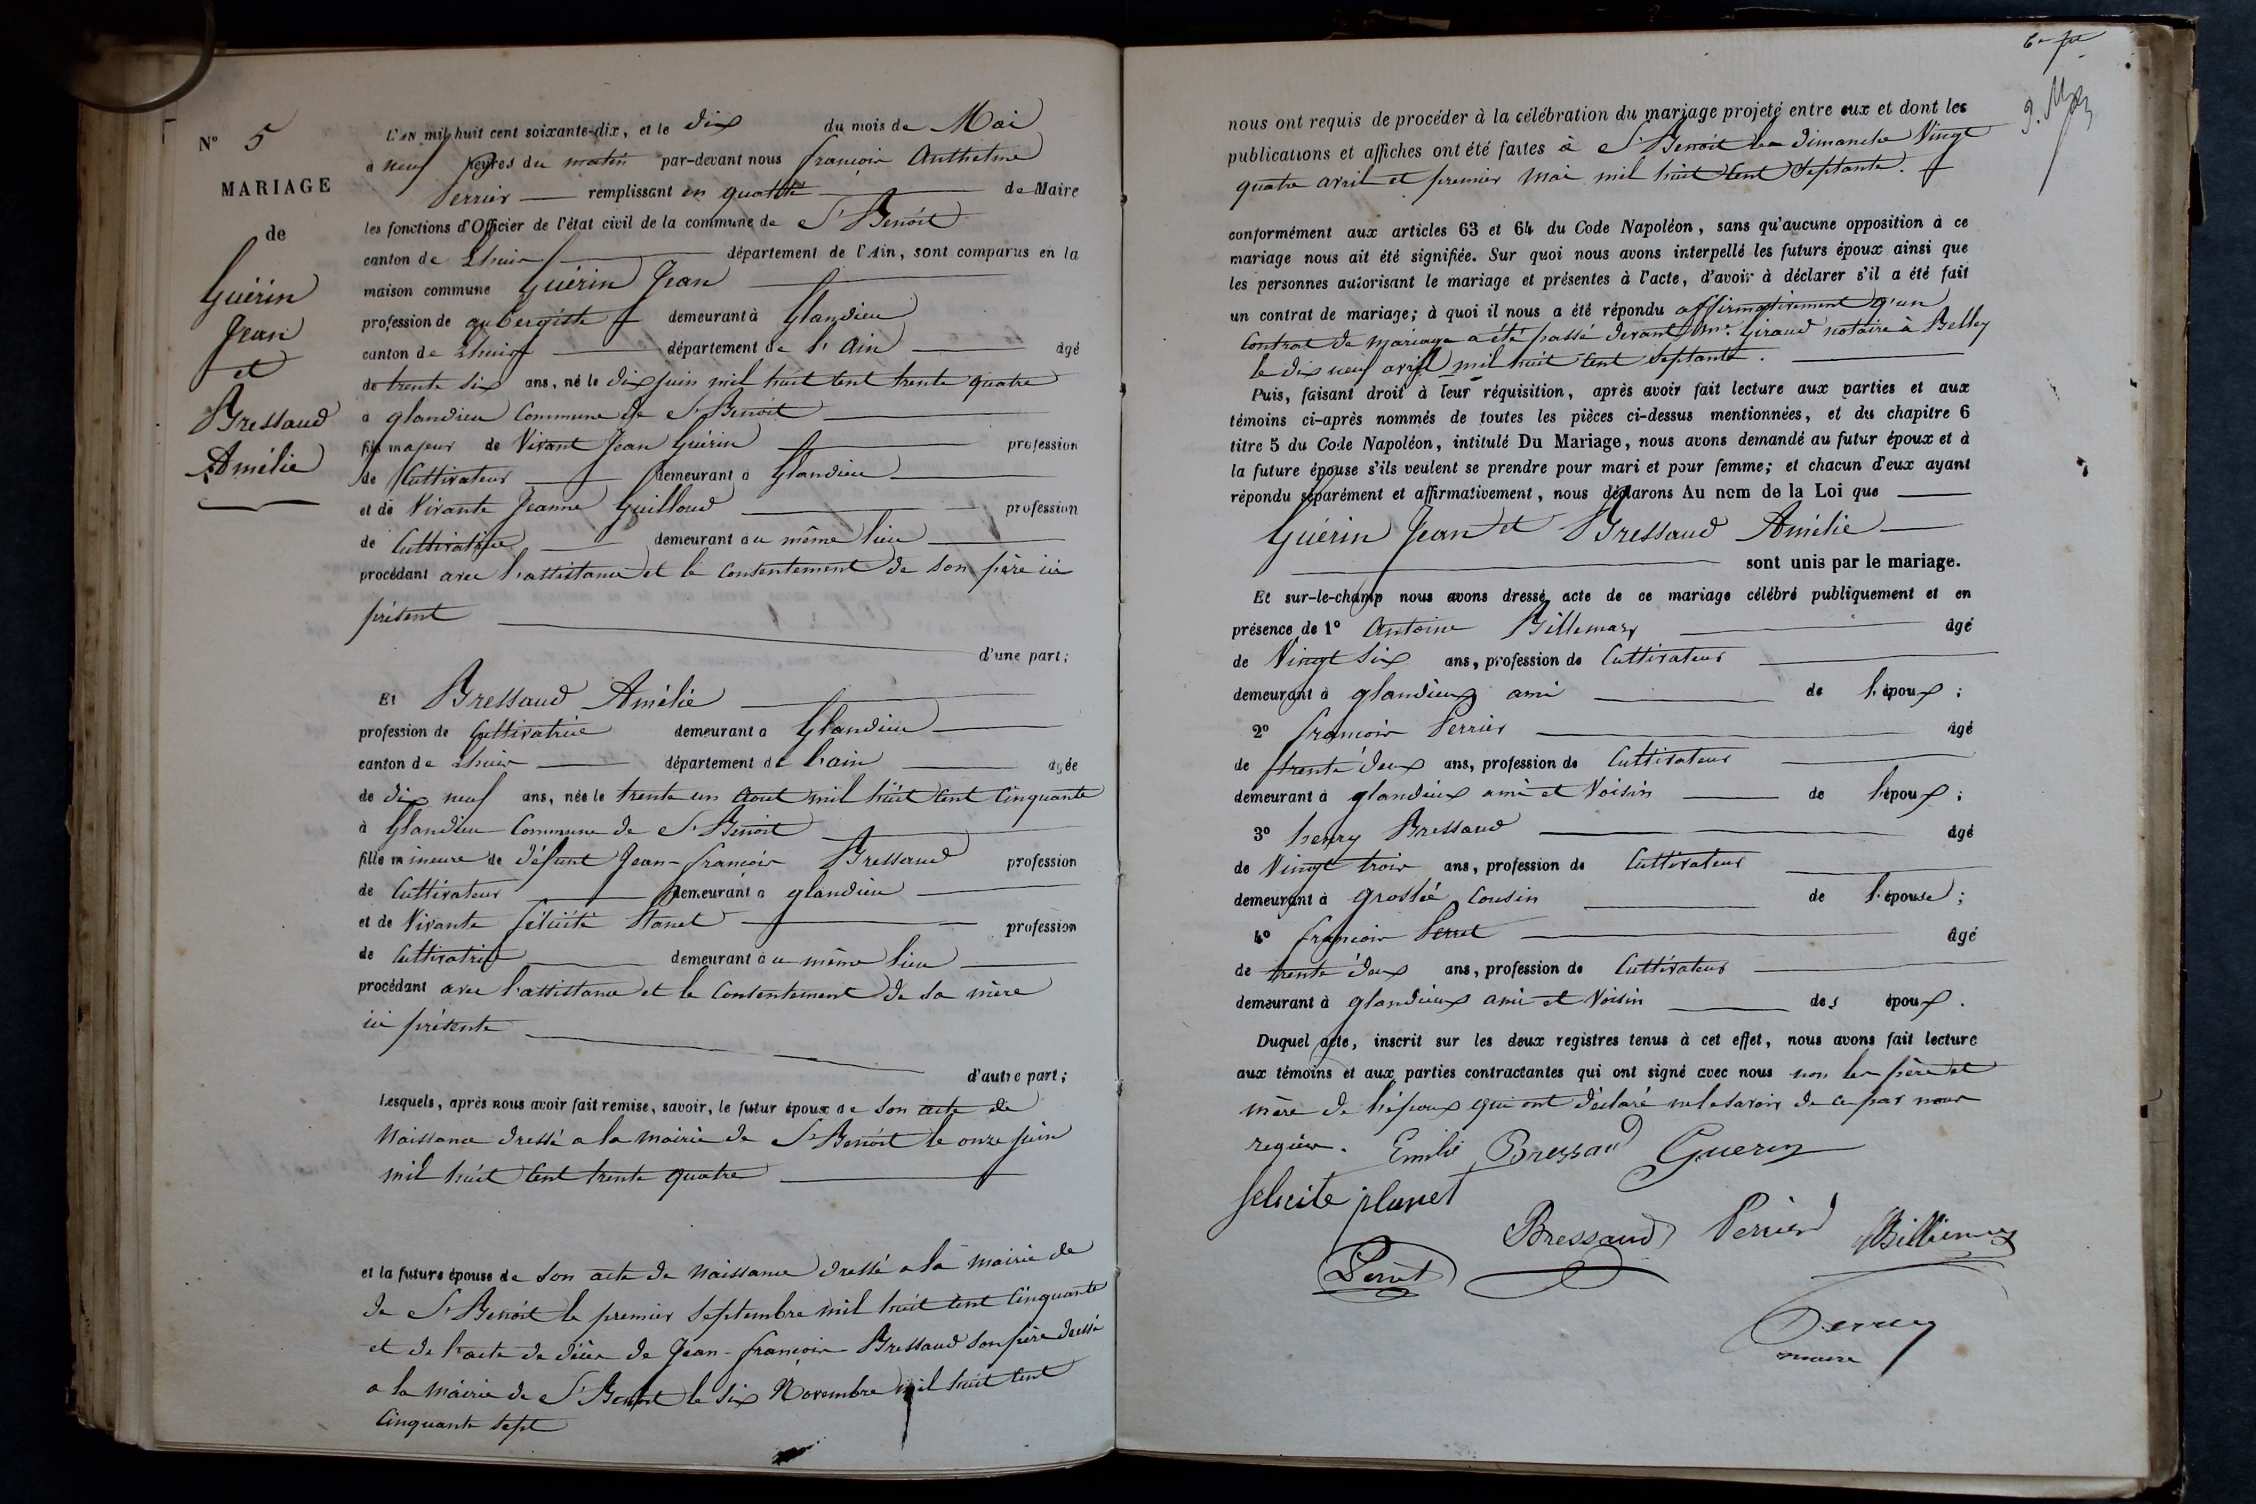 N° 5
MARIAGE
de
Guérin
Jean
et
Bressaud
Amélie
L'AN mil huit cent soixante-dix, et le dix du mois de Mai
à neuf heures du matin par-devant nous françois Anthelme
Perrier remplissant en qualité de Maire
les fonctions d'Officier de l'état civil de la commune de St Benoit
canton de Lhuis département de l'Ain, sont comparus en la
maison commune Guérin Jean
profession de aubergiste demeurant à Glandieu
canton de Lhuis département de l'ain âgé
de trente six ans, né le dix juin mil huit cent trente quatre
a glandieu Commune de St Benoit
fils majeur de Vivant Jean Guérin profession
de Cultivateur demeurant à Glandieu
et de Vivante Jeanne Guilloud profession
de Cultivatrice demeurant au même lieu
procédant avec l'assistance et le consentement de son père ici
présent
d'une part;
Et Bressaud Amélie
profession de Cultivatrice demeurant à Glandieu
canton de Lhuis département de l'ain agée
de dix neuf ans, née le trente un Aout mil huit cent Cinquante
à Glandieu Commune de St Benoit
fille mineure de défunt Jean-françois Bressaud profession
de Cultivateur demeurant à glandieu
et de Vivante félicité profession
de Cultivatrice demeurant au même lieu
procédant avec l'assistance et le Consentement de sa mère
ici présente
d'autre part;
Lesquels, après nous avoir fait remise, savoir, le futur époux de son acte de
Naissance dressé a la mairie de St Benoit le onze juin
mil huit Cent trente quatre
et la future épouse de son acte de Naissance dressé a la mairie de
de St Benoit le premier Septembre mil huit cent Cinquante
et de l'acte de décès de Jean-françois Bressaud son père dressé
a la mairie de St Benoit le six Novembre mil huit cent
Cinquante sept
nous ont requis de procéder à la célébration du mariage projeté entre eux et dont les
publications et affiches ont été faites à St Benoit les dimanche Vingt
quatre avril et premier Mai mil huit Cent Septante.
conformément aux articles 63 et 64 du Code Napoléon, sans qu'aucune opposition à ce
mariage nous ait été signifiée. Sur quoi nous avons interpellé les futurs époux ainsi que
les personnes autorisant le mariage et présentes à l'acte, d'avoir à déclarer s'il a été fait
un contrat de mariage; à quoi il nous a été répondu affirmativement q'un
Contrat de mariage a été passé devant Me Giraud notaire à Belley
le dix neuf avril mil huit cent Septante.
Puis, faisant droit à leur réquisition, après avoir fait lecture aux parties et aux
témoins ci-après nommés de toutes les pièces ci-dessus mentionnées, et du chapitre 6
titre 5 du Code Napoléon, intitulé Du Mariage, nous avons demandé au futur époux et à
la future épouse s'ils veulent se prendre pour mari et pour femme; et chacun d'eux ayant
répondu séparément et affirmativement, nous déclarons Au nom de la Loi que
Guérin Jean et Bressaud Amélie
sont unis par le mariage.
Et sur-le-champ nous avons dressé acte de ce mariage célébré publiquement et en
présence de 1° Antoine Billemaz âgé
de Vingt six ans, profession de Cultivateur
demeurant à glandieux ami de l'époux;
2° françois Perrier âgé
de trente deux ans, profession de Cultivateur
demeurant à glandieux ami et Voisin de l'époux;
3° henry Bressaud âgé
de Vingt trois ans, profession de Cultivateur
demeurant à Groslée Cousin de l'épouse;
4° françois Perret âgé
de trente deux ans, profession de Cultivateur
demeurant à glandieux ami et Voisin des époux.
Duquel acte, inscrit sur les deux registres tenus à cet effet, nous avons fait lecture
aux témoins et aux parties contractantes qui ont signé avec nous non les père et
mère de l'époux qui ont déclaré ne le savoir de ce par nous
requis. Emilie Bressaud Guerin
felicite plunet
Bressaud Perrier Billiemaz
Perret
Perrier
maire